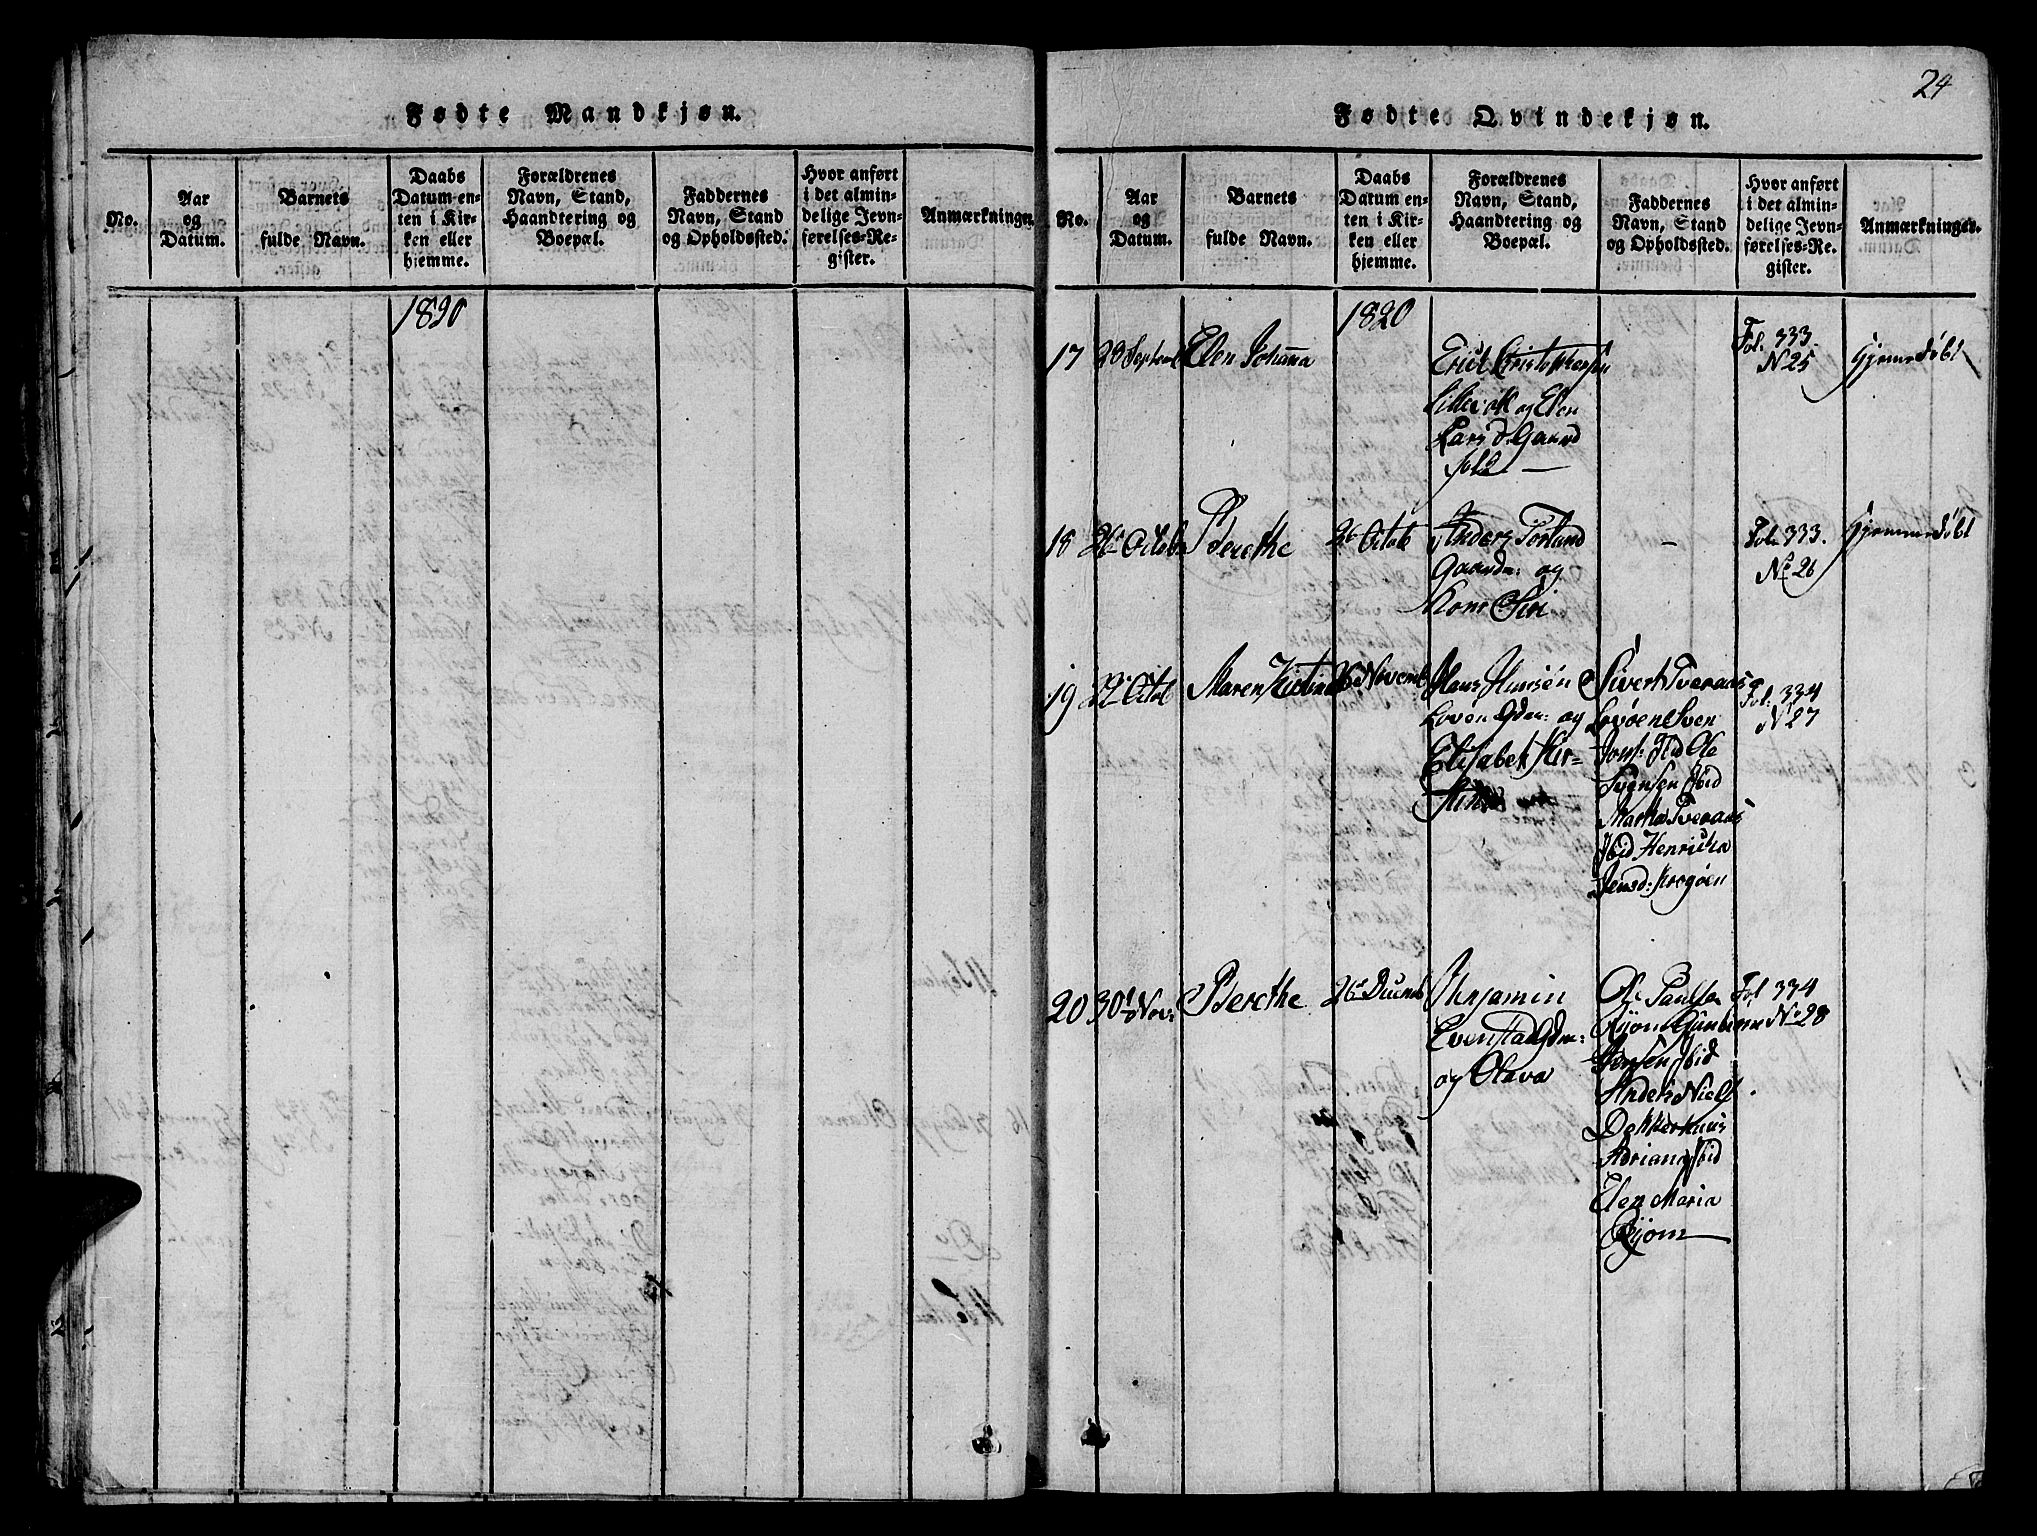 24
Fødte Mandkjøn.
No.
Aar
og
Datum.
Barnets
fulde Navn.
Daabs
Datum en-
ten i Kir-
ken eller
hjemme.
Forældrenes
Navn, Stand,
Haandtering og
Boepæl.
Faddernes
Navn, Stand
og Opholdssted.
Hvor anført
i det almin-
delige Jevn-
førelses-Re-
gister.
Anmærkninger.
1820
Fødte Qvindekjøn.
No.
Aar
og
Datum.
Barnets
fulde Navn.
Daabs
Datum en-
ten i Kir-
ken eller
hjemme.
Forældrenes
Navn, Stand,
Haandtering og
Boepæl.
Faddernes
Navn, Stand
og Opholdssted.
Hvor anført
i det almin-
delige Jevn-
førelses-Re-
gister.
Anmærkninger.
1820
17 Septemb Elen Johanna
Erick Christophersen
og Elen
Lars d. Gaard
folk
Fol: 333.
N 25
Hjemmedöbt
18 26 Octob Berethe 26 Octob
Anders Torland
Gaardm: og
Kone Siri
Fol: 333.
No 26
Hjemmedöbt
19 Octob Maren Kirstina 26 Novemb
Hans
og
Elisabet Kir=
stina
Sivert Tveraas
Sven
Jons: Ibid Ole
Svensen Ibid
Martha Tveraas
Ibid Henricha
Jensd:
Fol: 334
N 27
20 30 Nov: Berethe 26 Decemb
Benjamin
Evenstad Gdm:
og Olava
Ole Paulsen
Ibid
Anders Niels
Ibid
Elen Maria
Fol 334
No 28